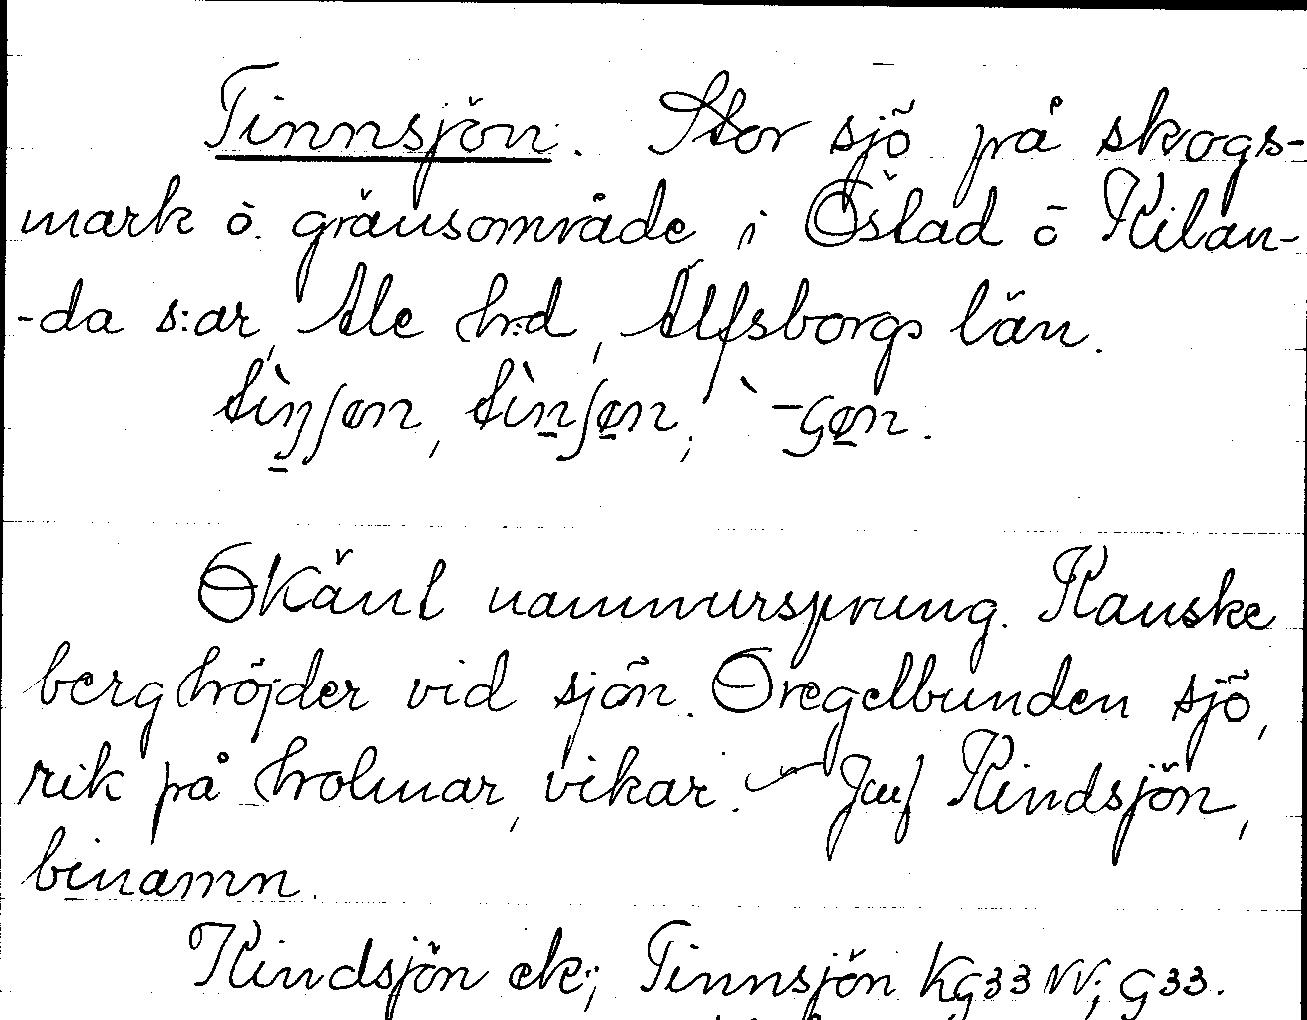 Tinnsjön. Stor sjö på skogs-
mark ö. gränsområde i Östad ö Kilan-
-da s:ar, Ale h:d, Älfsborgs län.
Okänt namnursprung. Kanske
berghöjder vid sjön. Oregelbunden sjö,
rik på holmar, vikar. – Jmf Kindsjön,
binamn.
Kindsjön ek; Tinnsjön Kg33 NV; G33.